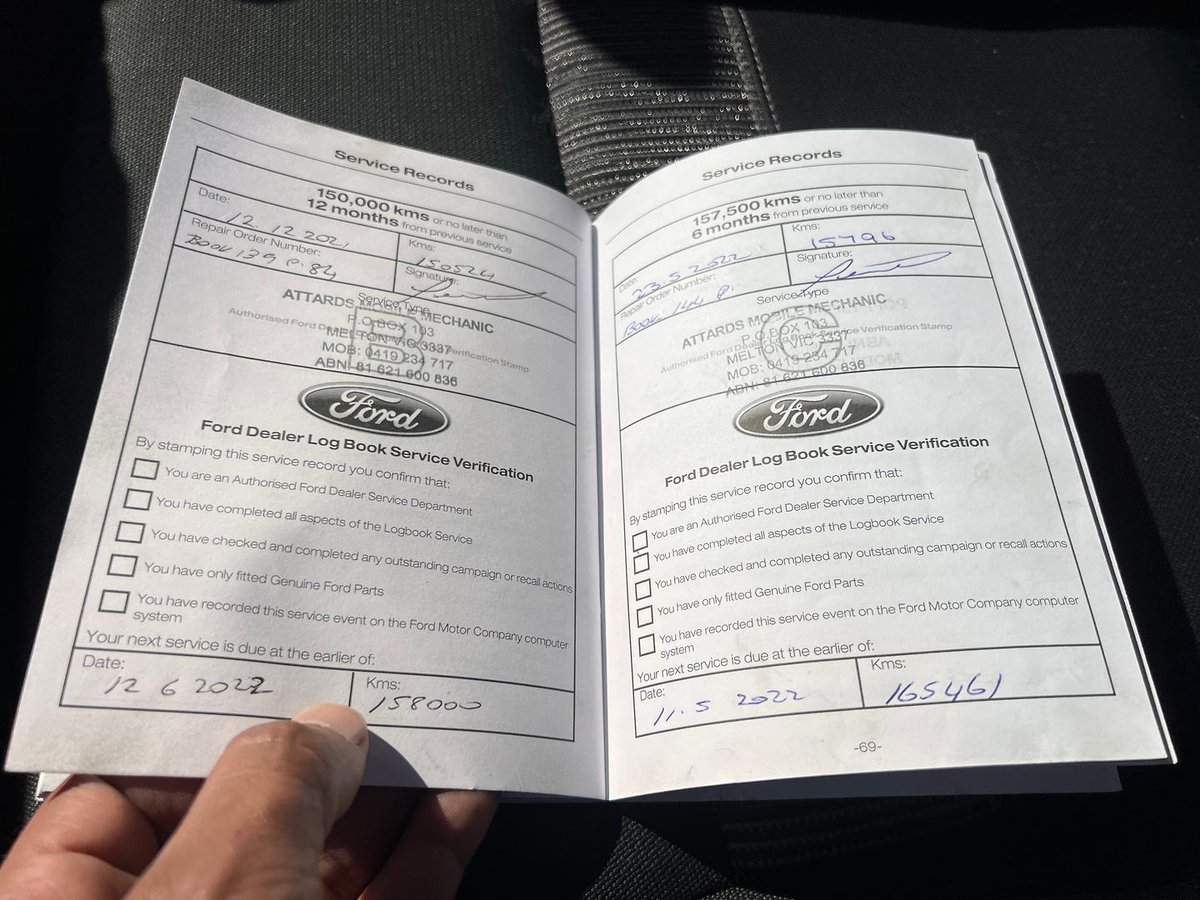 Service Records
150,000 kms or no later than
12 months from previous service
Date:
12.12.202,
Kms:
150524
Repair Order Number:
Book 139 p.84
Signature:
Service Type
B
Authorised Ford Dealer Log Book Service Verification Stamp
ATTARDS MOBILE MECHANIC
P.O BOX 103
MELTON VIC 3337
MOB: 0419 234 717
ABN: 81 621 600 836
Ford
Ford Dealer Log Book Service Verification
By stamping this service record you confirm that:
You are an Authorised Ford Dealer Service Department
You have completed all aspects of the Logbook Service
You have checked and completed any outstanding campaign or recall actions
You have only fitted Genuine Ford Parts
You have recorded this service event on the Ford Motor Company computer
system
Your next service is due at the earlier of:
Date:
12 6 2022
Kms:
158000
Service Records
157,500 kms or no later than
6 months from previous service
Date:
23.5.2022
Kms:
15796
Repair Order Number:
Book 144 P.
Signature:
Service Type
C
Authorised Ford Dealer Log Book Service Verification Stamp
ATTARDS MOBILE MECHANIC
P.O BOX 103
MELTON VIC 3337
MOB: 0419 234 717
ABN: 81 621 600 836
Ford
Ford Dealer Log Book Service Verification
By stamping this service record you confirm that:
You are an Authorised Ford Dealer Service Department
You have completed all aspects of the Logbook Service
You have checked and completed any outstanding campaign or recall actions
You have only fitted Genuine Ford Parts
You have recorded this service event on the Ford Motor Company computer
system
Your next service is due at the earlier of:
Date:
11.5 2022
Kms:
165461
-69-